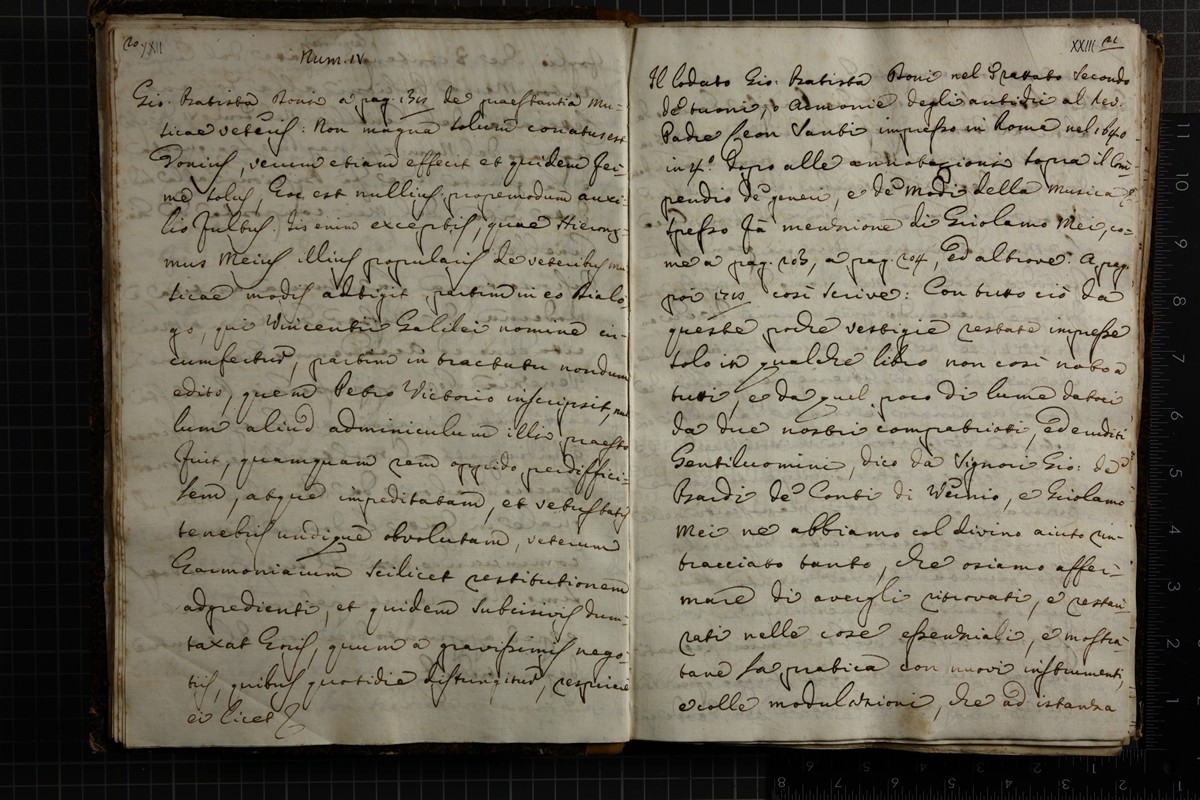 20 XXII
Num. IV
Gio. Batista Doni a pag. 132 de praestantia Mu-
sicae veteris: Non magna solum conatus est
Donius, verum etiam effecit et quidem fer
me solus, hoc est nullius propemodum auxi-
lio fultus. Iis enim exceptis, quae Hierony-
mus Meius illius popularis de veteribus mu
sicae modis attigit, partim in eo Dialo
go, qui Vincentii Galilei nomine cir-
cumfertur, partim in tractatu nondum
edito, quem Petro Victorio inscripsit, nul
lum aliud adminiculum illi praesto
fuit, quamquam rem oppido perdiffici-
lem, atque impeditatam, et vetustatis
tenebris undique obvolutam, veterum
harmoniarum scilicet restitutionem
adgredienti, et quidem subcisivis dum-
taxat horis, quum a gravissimis nego-
tiis, quibus quotidie distringitur, respirare
ei licet
XXIII 21
Il lodato Gio. Batista Doni nel Trattato Secondo
de tuoni, o Armonie degli antichi al Rev.
Padre Leon Santi impresso in Roma nel 1640
in 4.º dopo alle annotazioni sopra il Com-
pendio de' generi, e de' Modi della Musica
presso fa menzione di Girolamo Mei, co-
me a pag. 203, a pag. 204, ed altrove. A pag.
poi così scrive: Con tutto ciò da
queste poche vestigie restate impresse
solo in qualche libro non così noto a
tutti, e da quel poco di lume datoci
da due nostri compatriotti, ed eruditi
Gentiluomini, dico da' Signori Gio: de'
Bardi de' Conti di Vernio, e Girolamo
Mei ne abbiamo col divino aiuto rin-
tracciato tanto, che osiamo affer-
mare di avergli ritrovati, e restau
rati nelle cose essenziali, e mostra
tane la pratica con nuovi instrumenti,
e colle modulazioni, che ad istanza